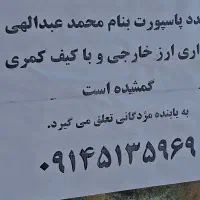 دد پاسپورت بنام محمد عبدالهی
اری ارز خارجی و با کیف کمری
گمشیده است
به یابنده مژدگانی تعلق می گیرد.
۰۹۱۴۵۱۳۵۹۶۹